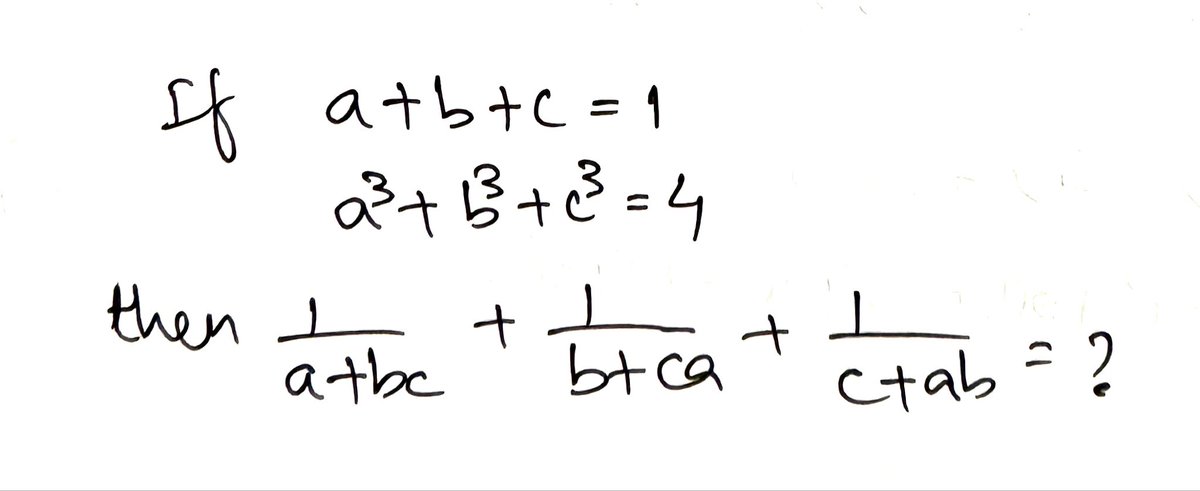 If a+b+c = 1
a³+b³+c³ = 4
then 1/(a+bc) + 1/(b+ca) + 1/(c+ab) = ?